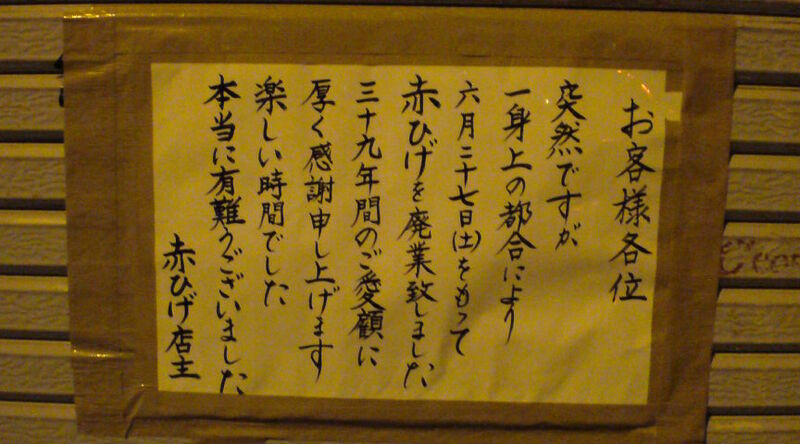 お客様各位
突然ですが
一身上の都合により
六月二十七日(土)をもって
赤ひげを廃業致しました
三十九年間のご愛顧に
厚く感謝申し上げます
楽しい時間でした
本当に有難うございました
赤ひげ店主